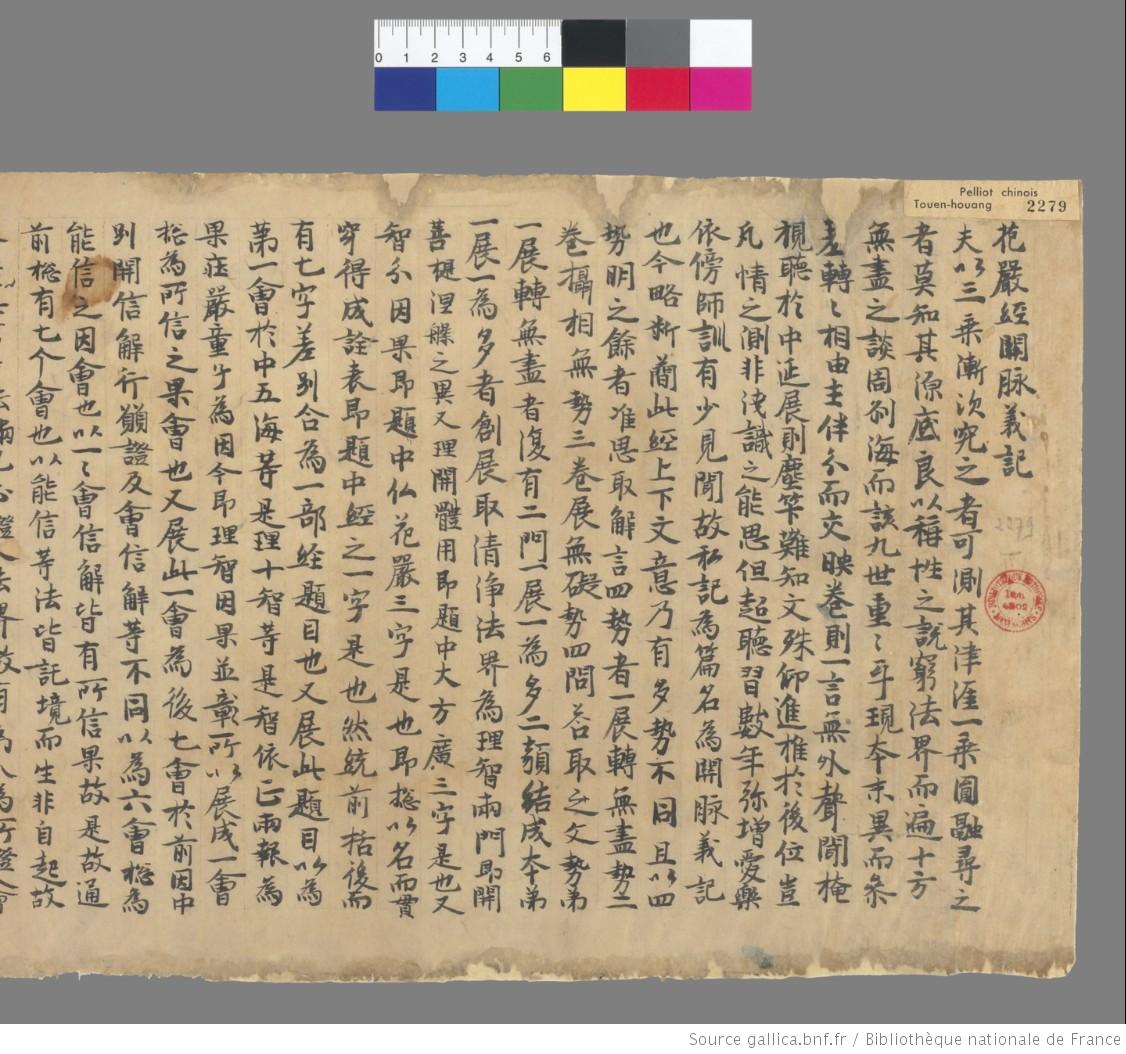 0 1 2 3 4 5 6
Pelliot chinois
Touen-houang 2279
花嚴經開脉義記
夫以三乘漸次究之者可測其津涯一乘圓融尋之
者莫知其源底良以稱性之說窮法界而遍十方
無盡之談周剎海而該九世重〻乎現本末異而叅
差轉〻相由主伴分而交映卷則一言無外聲聞掩
視聽於中延展則塵筭難知文殊仰進推於後位豈
凡情之測非淺識之能思但起聽習數年弥增愛樂
依傍師訓有少見聞故私記為篇名為開脉義記
也今略斯蕳此經上下文意乃有多勢不同且以四
勢明之餘者准思取解言四勢者一展轉無盡勢二
卷攝相無勢三卷展無礙勢四問荅取之文勢弟
一展轉無盡者復有二門一展一為多二類結成本弟
一展一為多者創展取清淨法界為理智兩門即開
菩提涅槃之異又理開體用即題中大方廣三字是也又
智分因果即題中仏花嚴三字是也即揔以名而貫
穿得成詮表即題中經之一字是也然統前括後而
有七字差別合為一部經題目也又展此題目以為
第一會於中五海等是理十智等是智依正兩報為
果莊嚴童子為因今即理智因果並彰所以展成一會
揔為所信之果會也又展此一會為後七會於前因中
別開信解行願證及會信解等不同以為六會揔為
能信之因會也以一〻會信解皆有所信果故是故通
前揔有七个會也以能信等法皆託境而生非自起故
2279